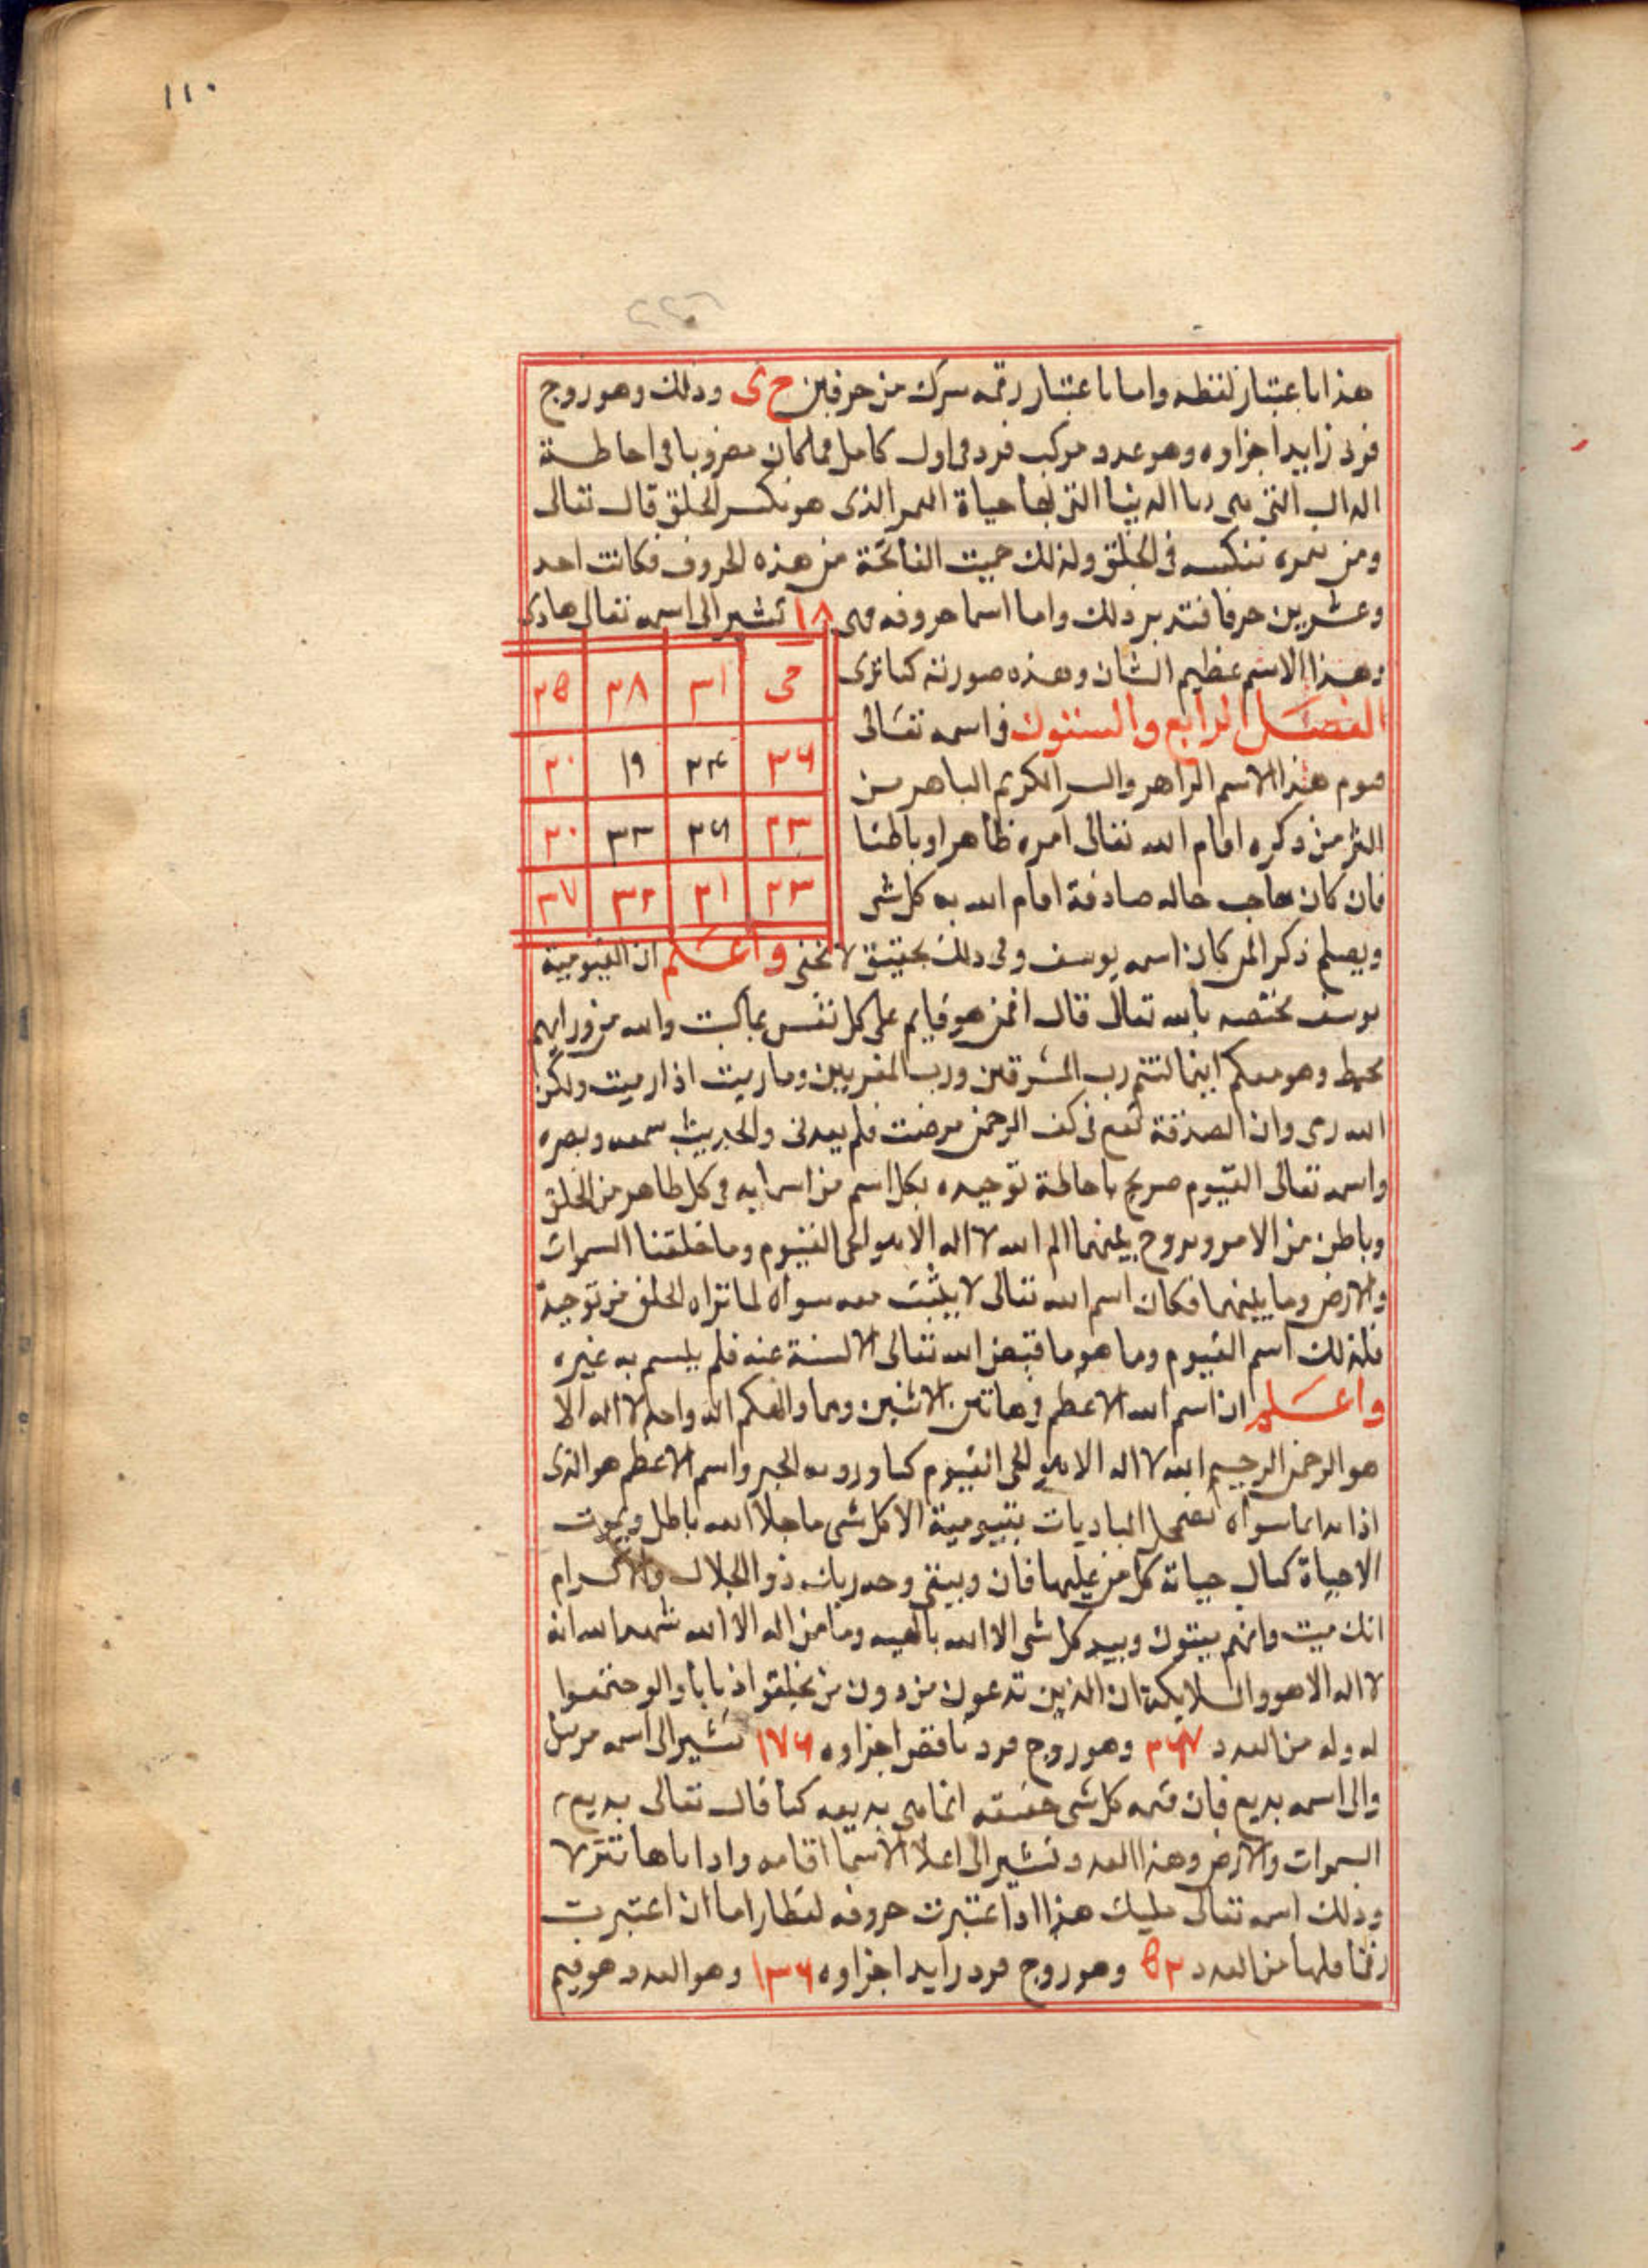 ١١٠
هذا باعتبار لفظه واما باعتبار رقمه مركب من حرفين ح ى وذلك وهو زوج
فرد زايد اجزاوه وهو عدد مركب فرد فى اول كامل فلما كان مضروبا فى احاطة
التى الدنيا التى لها حياة الذى هو نكس الخلق قال تعالى
ومن نعمره ننكسه فى الخلق ولذلك حميت الفاتحة من هذه الحروف فكانت احد
وعشرين حرفا فتدبر ذلك واما اسما حروفه فهى ١٨ تشير الى اسمه تعالى هادى
وهذا الاسم عظيم الشان وهذه صورته كما ترى
حى ٣١ ٣٨ ٣٥
الفصل الرابع والستون فى اسمه تعالى
٣٦ ٣٤ ١٩ ٢٠
قيوم هذا الاسم الزاهر والسر الكريم الباهر من
٢٣ ٣٦ ٣٣ ٣٠
اكثر من ذكره اقام الله تعالى امره ظاهرا وباطنا
٢٣ ٢١ ٣٢ ٣٧
فان كان صاحب حاله صادقة اقام الله به كل شى
ويصلح ذكرا لمن كان اسمه يوسف وفى ذلك تحقيق لا تخفى واعلم ان القيومية
يوسف مختصه بالله تعالى قال افمن هو قايم على كل نفس بما كسبت والله من ورايهم
محيط وهو معكم اينما كنتم رب المشرقين ورب المغربين وما رميت اذ رميت ولكن
الله رمى وان الصدقة تقع فى كف الرحمن مرضت فلم تعدنى والحديث سمعه وبصره
واسمه تعالى القيوم صريح باحاطة توحيده بكل اسم من اسمايه فى كل ظاهر من الخلق
وباطن من الامر وبروح بينهما الم الله لا اله الا هو الحى القيوم وما خلقنا السموات
والارض وما بينهما فكان اسم الله تعالى لا يثبت معه سواه لما تراه الخلق من توحيده
فلذلك اسم القيوم وما هو ما قبض الله تعالى الالسنة عنه فلم يتسم به غيره
واعلم ان اسم الله الاعظم فى هاتين الاثنين وهما والهكم اله واحد لا اله الا
هو الرحمن الرحيم الله لا اله الا هو الحى القيوم كما ورد به الخبر واسم الاعظم هو الذى
اذا بدا ما سواه تضمحل الباديات بقيومية الا كل شى ما خلا الله باطل ويموت
الاحياة كمال حياته كل من عليها فان ويبقى وجه ربك ذو الجلال والاكرام
انك ميت وانهم ميتون ويبيد كل شى الا الله بالهيه وما من اله الا الله شهد الله انه
لا اله الا هو والملايكة ان الذين تدعون من دون من يخلقوا ذبابا ولو اجتمعوا
له وله من العدد ٣٦٧ وهو زوج فرد ناقص اجزاوه ١٧٦ تشير الى اسمه مرسل
والى اسمه بديع فان قيمه كل شى حقيقته انما هى بديعه كما قال تعالى بديع
السموات والارض وهذا العدد تشير الى اعلا الاسما اقامه واداباها تنزلا
وذلك اسمه تعالى مليك هذا اذا اعتبرت حروفه لفظا واما ان اعتبرت
رقما فلها من العدد ٥٢ وهو زوج فرد زايد اجزاوه ١٣٦ وهو العدد هو قيم